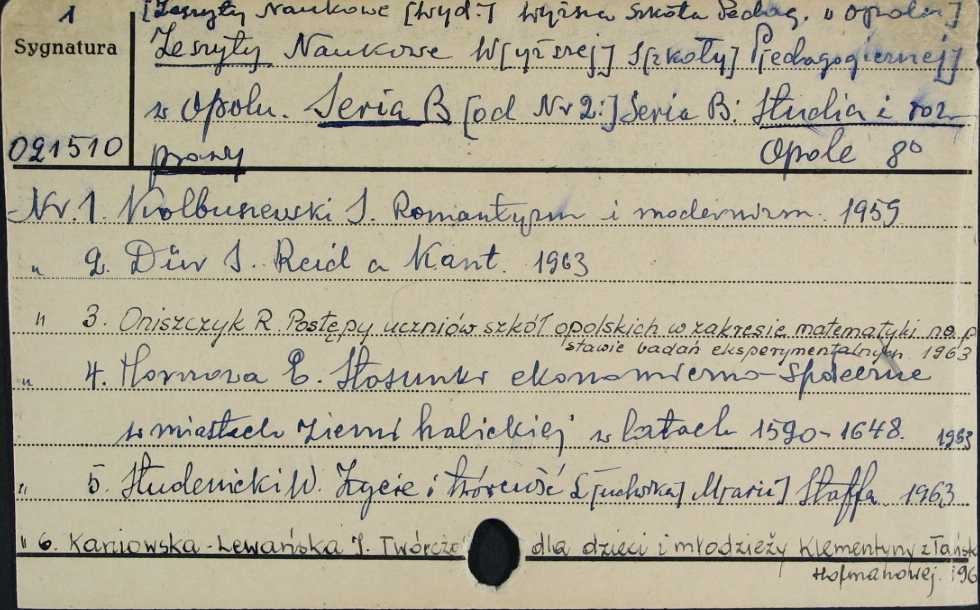 1
[Zeszyty Naukowe [Wyd.:] Wyższa Szkoła Pedag. w Opolu]
Sygnatura
Zeszyty Naukowe W[yższej] S[zkoły] P[edagogicznej]
w Opolu. Seria B [od Nr 2:] Seria B: Studia i roz-
021510
prawy Opole 8°
Nr. 1. Kolbuszewski S. Romantyzm i modernizm. 1959
" 2. Dürr J. Reid a Kant. 1963
" 3. Oniszczyk R. Postępy uczniów szkół opolskich w zakresie matematyki na p
stawie badań eksperymentalnych. 1963
" 4. Hornowa E. Stosunki ekonomiczno-społeczne
w miastach ziemi halickiej w latach 1590-1648. 1963
" 5. Studencki W. Życie i twórczość L[udwika] M[arii] Staffa. 1963
" 6. Kaniowska-Lewańska I. Twórczo dla dzieci i młodzieży Klementyny z Tańsk
Hofmanowej. 196